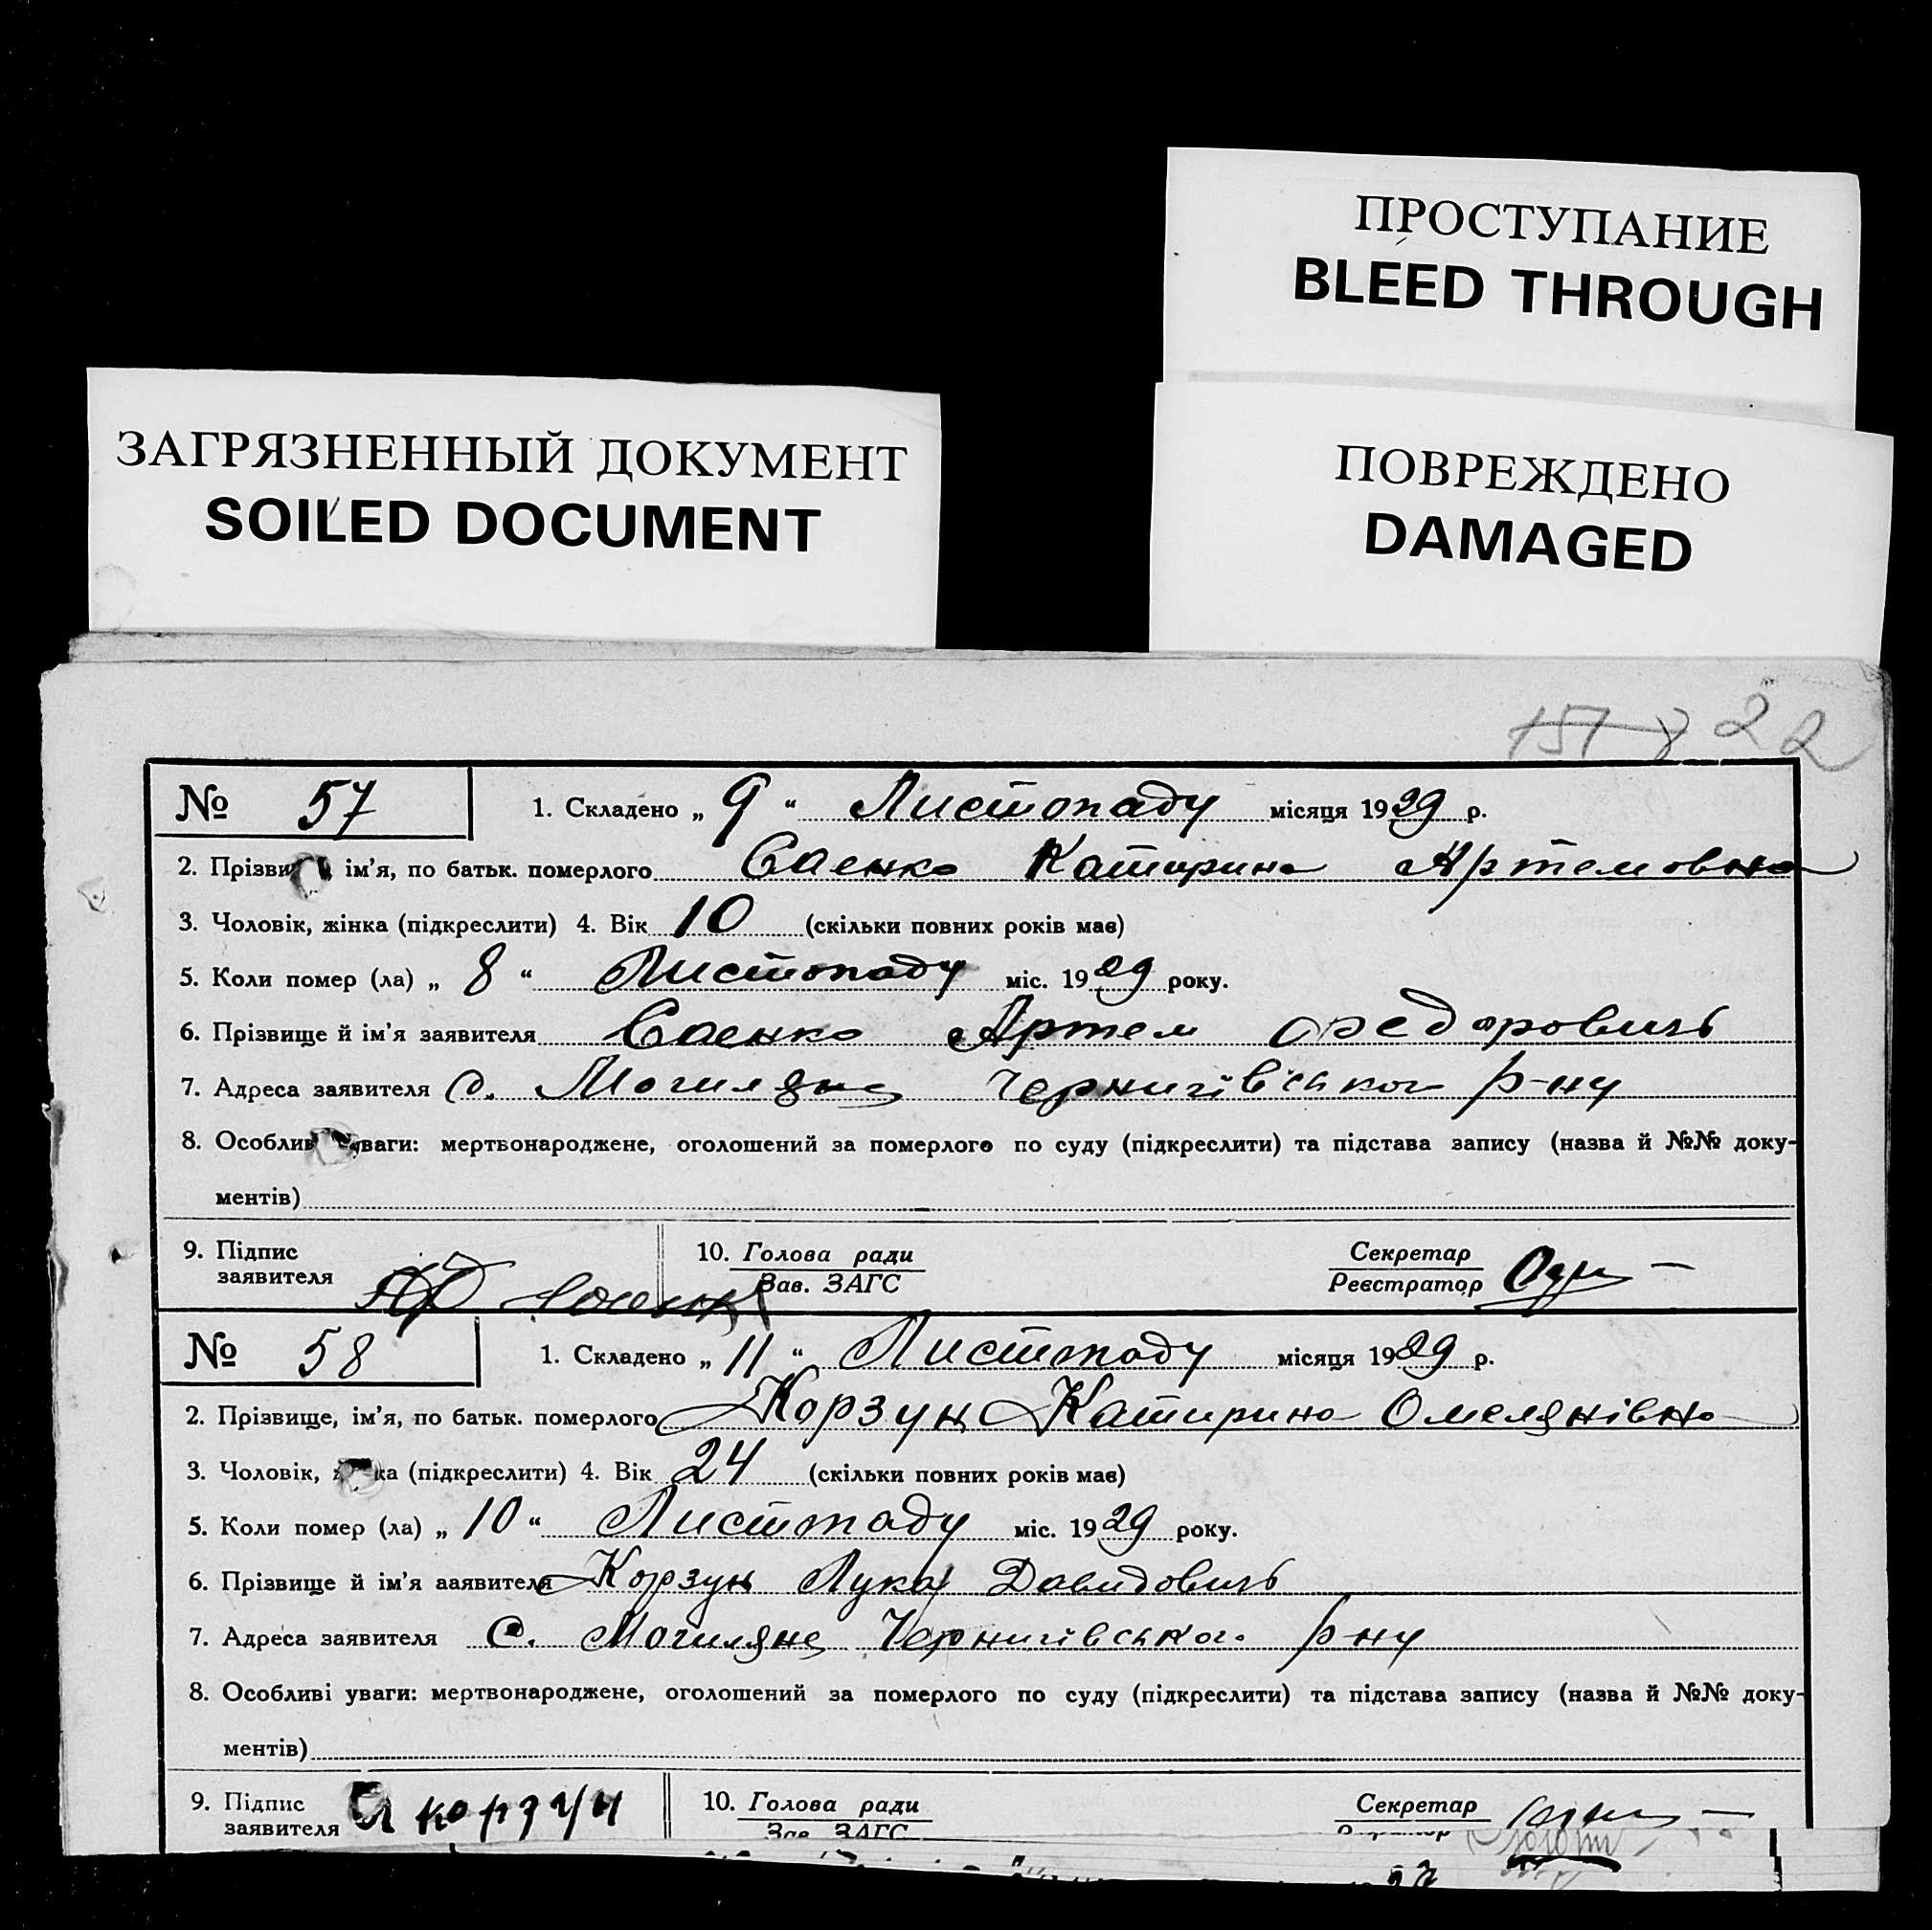 ПРОСТУПАНИЕ
BLEED THROUGH
ЗАГРЯЗНЕННЫЙ ДОКУМЕНТ
SOILED DOCUMENT
ПОВРЕЖДЕНО
DAMAGED
22
№ 57 1. Складено „ 9 “ Листопаду місяця 1929 р.
2. Прізви ім’я, по батьк. померлого Саенко Катирина Артемовна
3. Чоловік, жінка (підкреслити) 4. Вік 10 (скільки повних років має)
5. Коли помер (ла) „ 8 “ Листопаду міс. 1929 року.
6. Прізвище й ім’я заявителя Саенко Артем Федоровичь
7. Адреса заявителя с. Могиляне Чернигівського р-ну
8. Особлив уваги: мертвонароджене, оголошений за померлого по суду (підкреслити) та підстава запису (назва й №№ доку-
ментів)
9. Підпис заявителя 10. Голова ради Зав. ЗАГС Секретар Реєстратор
№ 58 1. Складено „ 11 “ Листопаду місяця 1929 р.
2. Прізвище, ім’я, по батьк. померлого Корзун Катирина Омелянівна
3. Чоловік, ка (підкреслити) 4. Вік 24 (скільки повних років має)
5. Коли помер (ла) „ 10 “ Листопаду міс. 1929 року.
6. Прізвище й ім’я ааявителя Корзун Лука Давидовичь
7. Адреса заявителя с. Могиляне Чернигівського р-ну
8. Особливі уваги: мертвонароджене, оголошений за померлого по суду (підкреслити) та підстава запису (назва й №№ доку-
ментів)
9. Підпис заявителя корзун 10. Голова ради Зав. ЗАГС Секретар